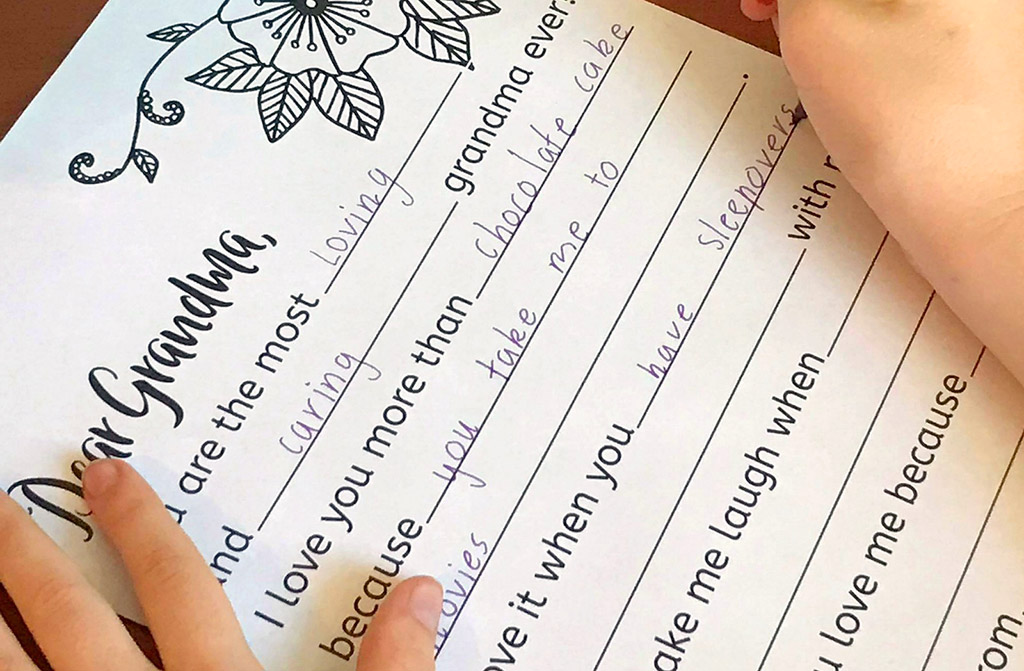 Dear Grandma,
are the most Loving
caring grandma ever.
I love you more than chocolate cake
because you take me to
.
it when you have sleepovers
with
me laugh when
love me because